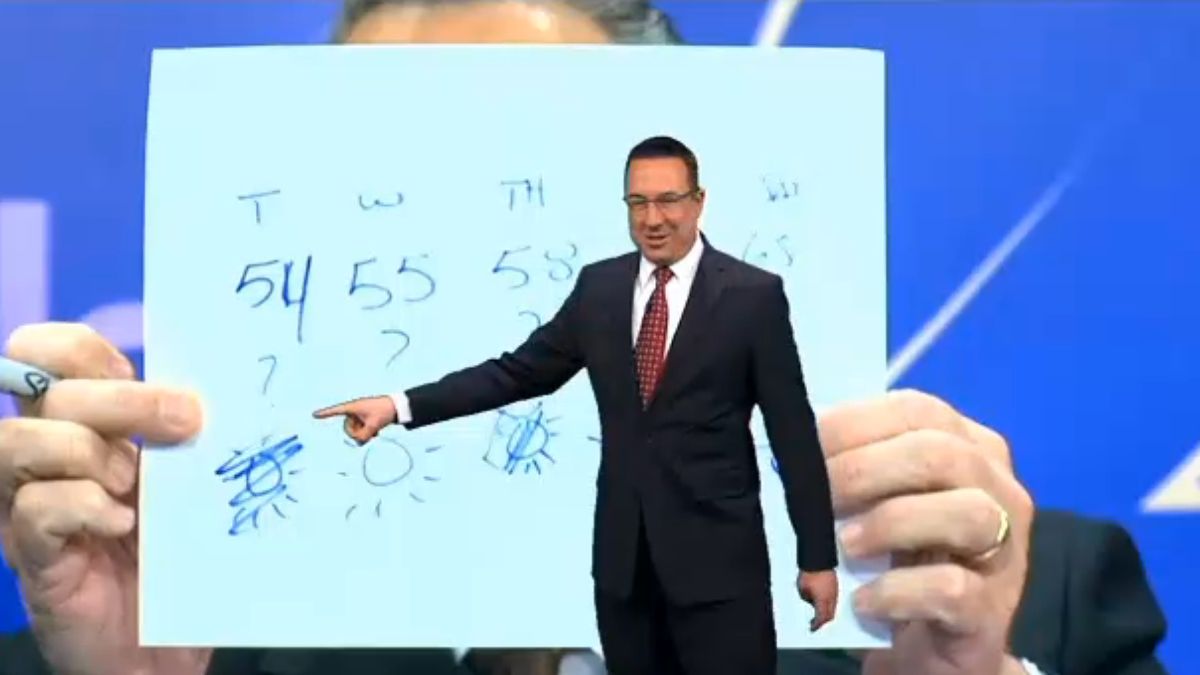 T W TH
54 55 58
? ? ?